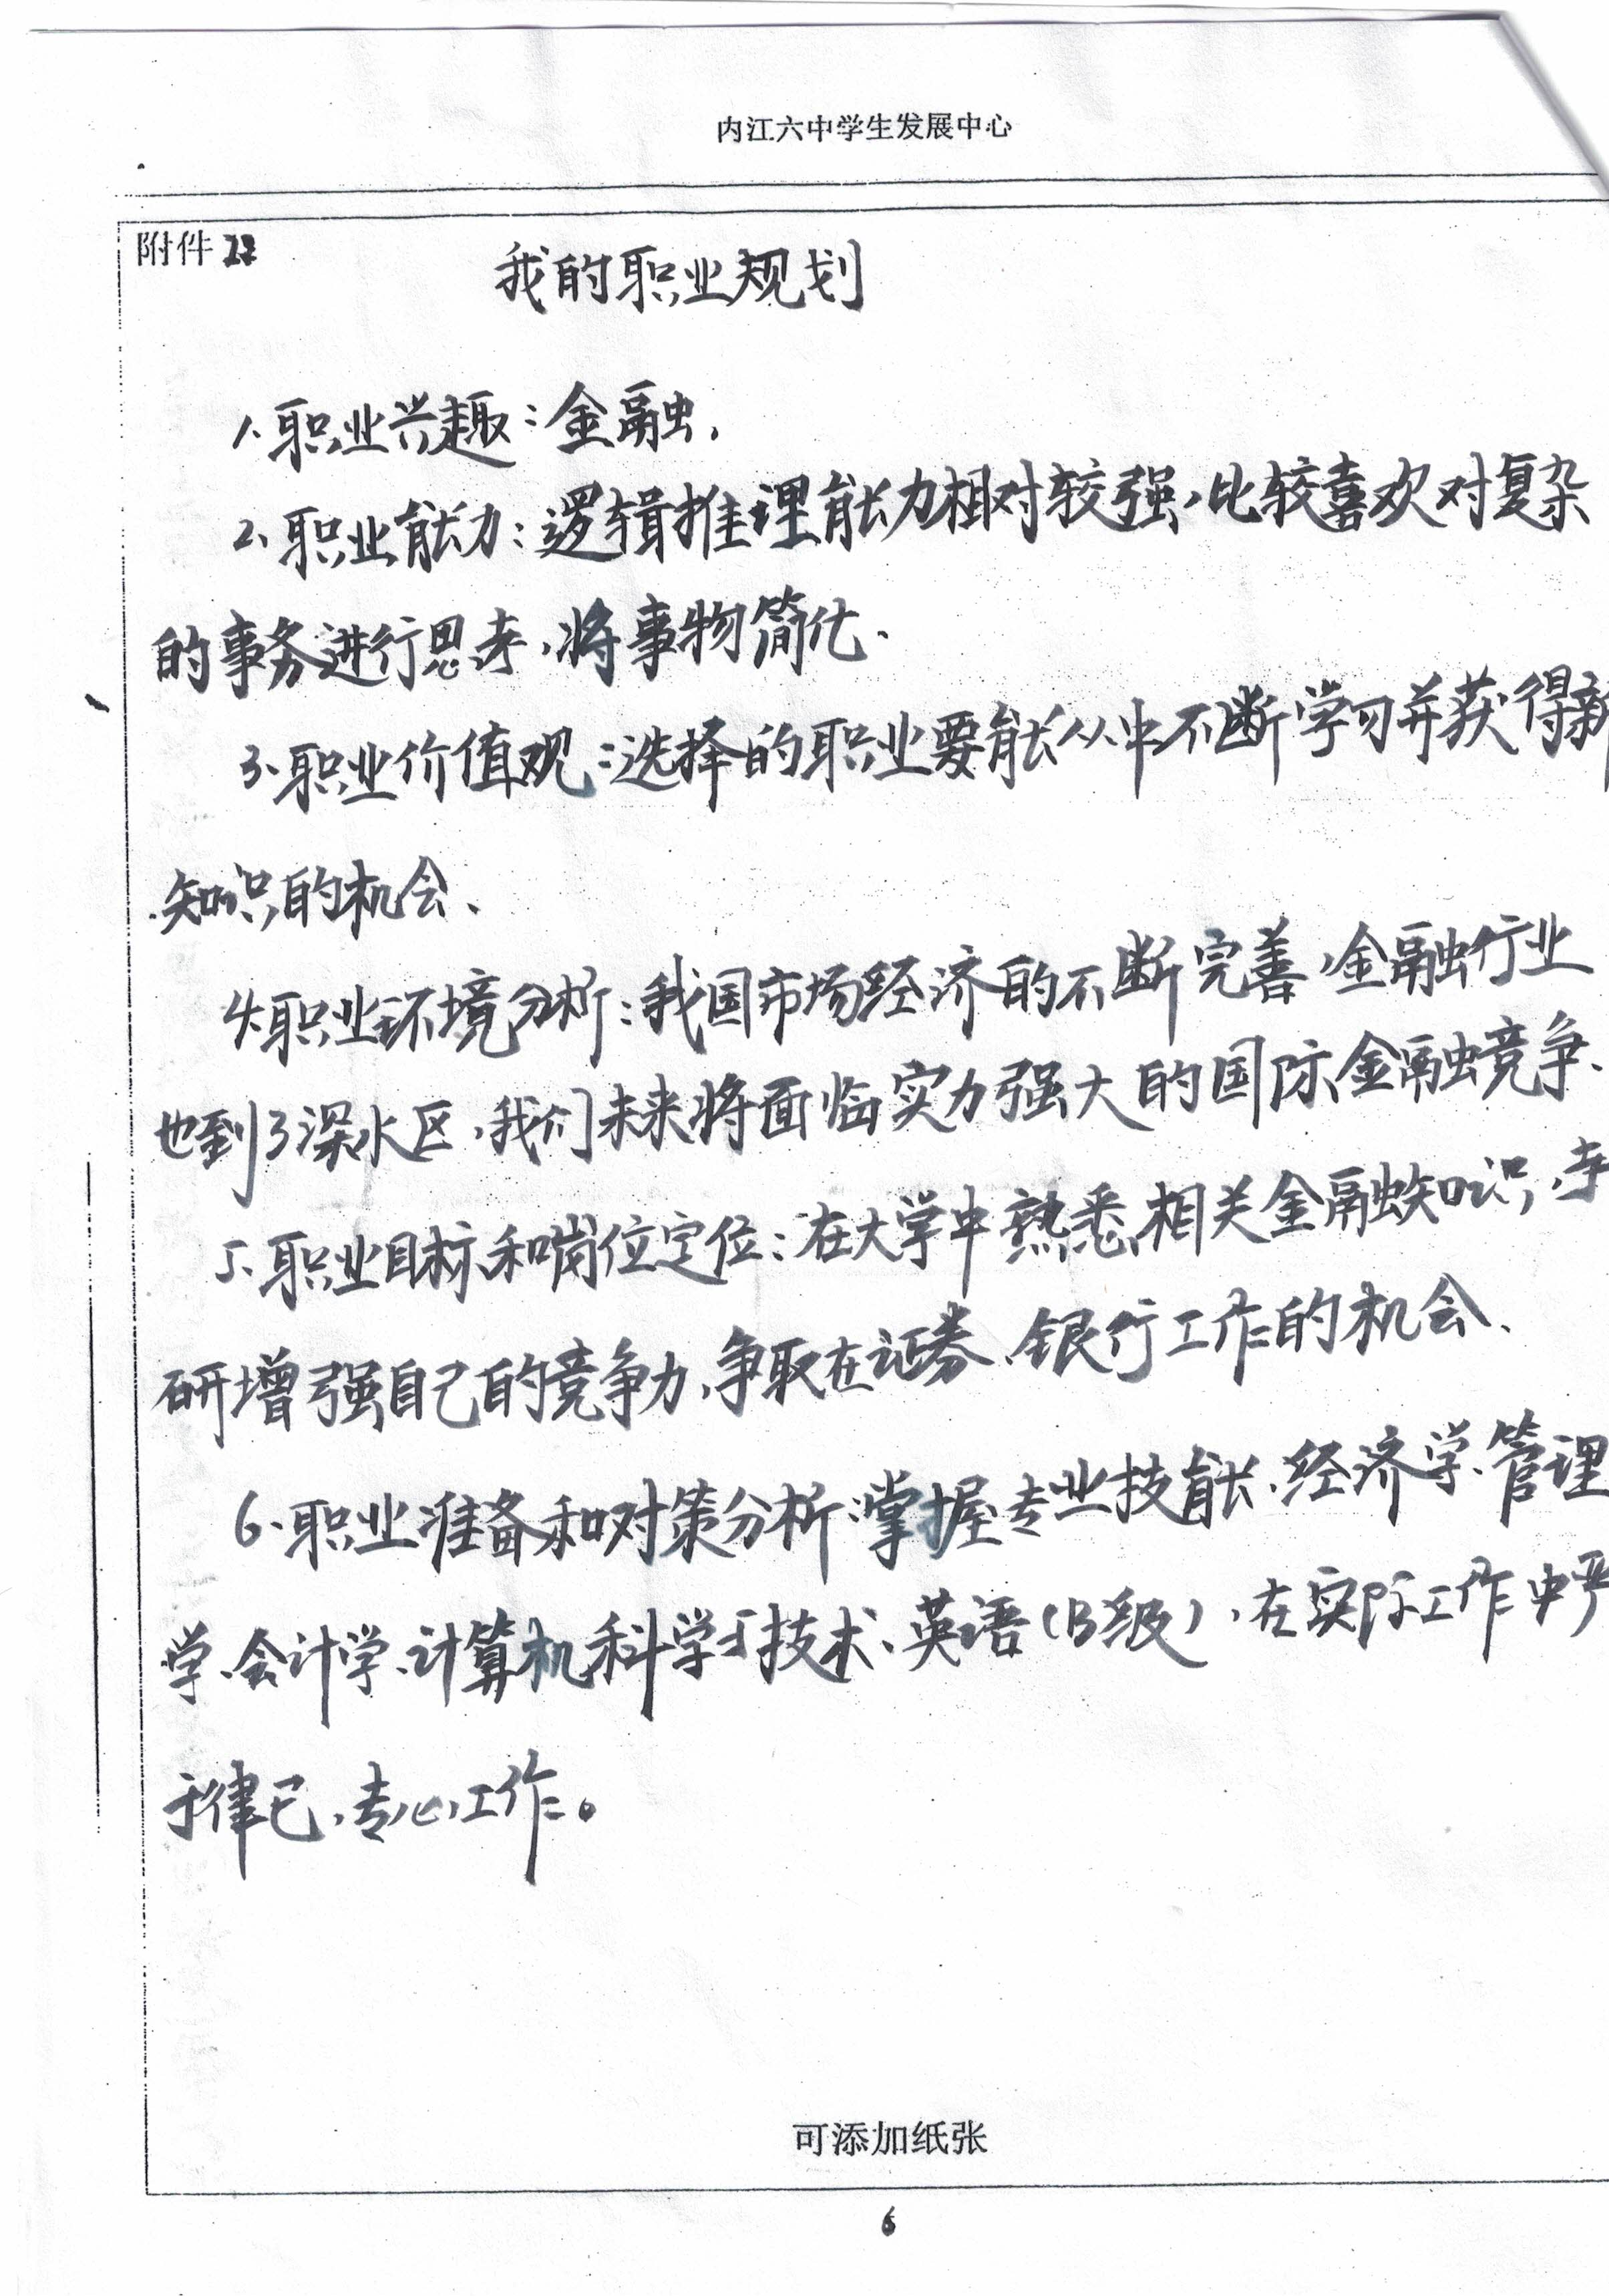 内江六中学生发展中心
附件
我的职业规划
1.职业兴趣:金融.
2、职业能力:逻辑推理能力相对较强,比较喜欢对复杂
的事务进行思考,将事物简化.
3.职业价值观:选择的职业要能从中不断学习并获得新
知识的机会、
4.职业环境分析:我国市场经济的不断完善,金融行业
也到了深水区,我们未来将面临实力强大的国际金融竞争、
5.职业目标和岗位定位:在大学中熟悉相关金融知识,考
研增强自己的竞争力,争取在证券、银行工作的机会、
6.职业准备和对策分析:掌握专业技能、经济学、管理
学、会计学、计算机科学与技术、英语(B级),在实际工作中严
于律己,专心工作。
可添加纸张
6